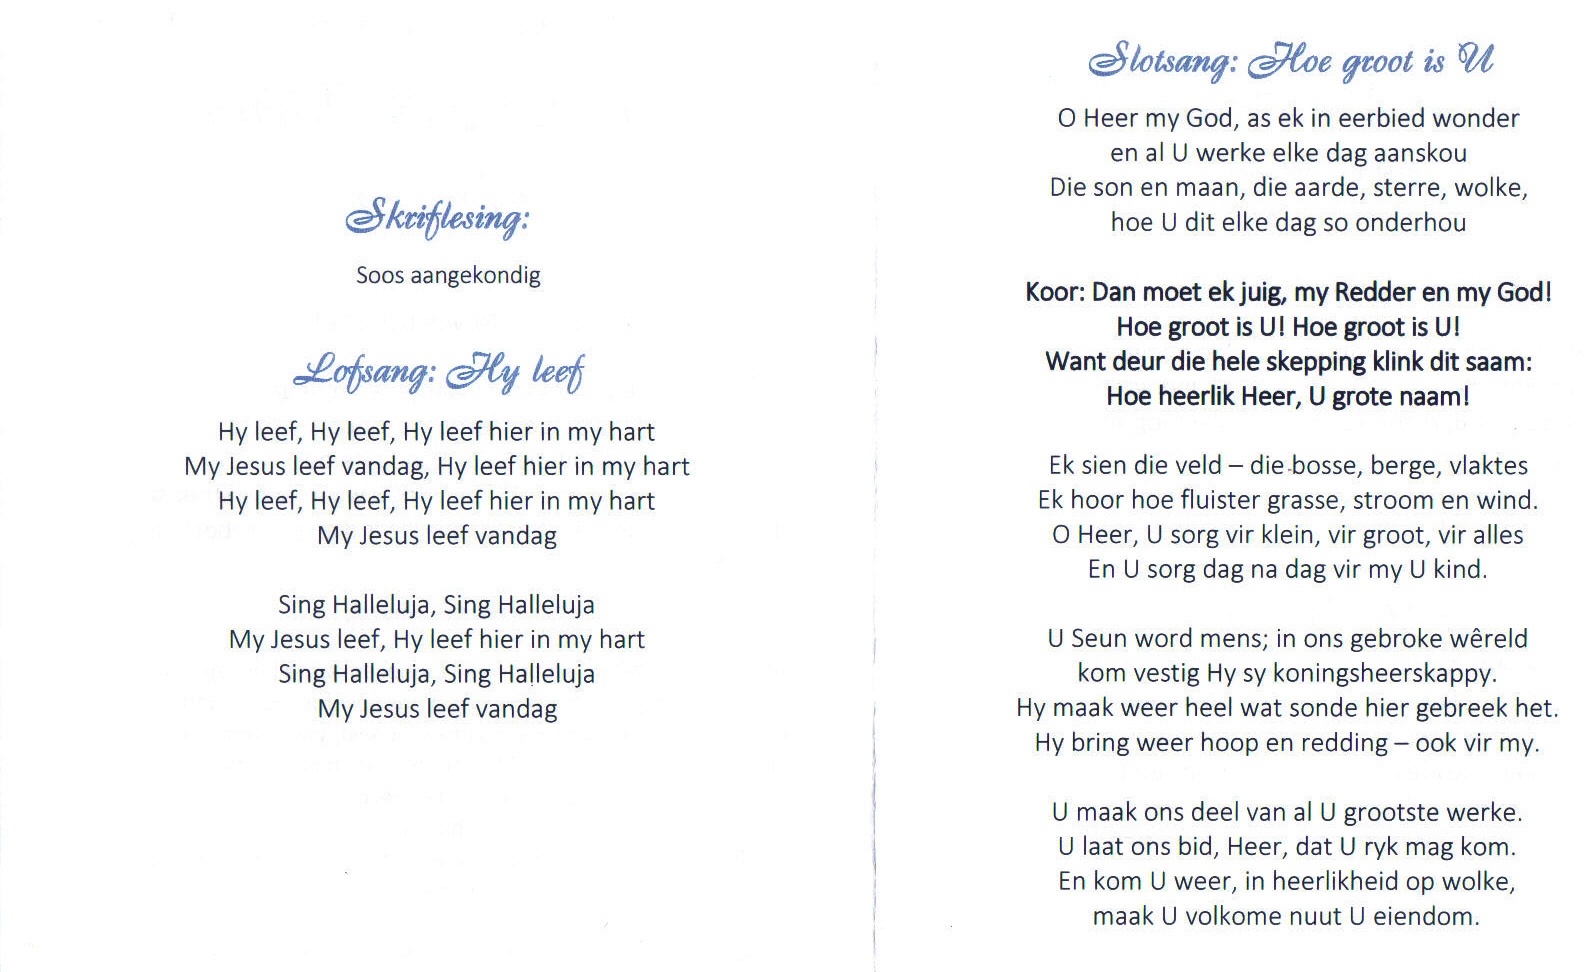 Skriflesing:
Soos aangekondig
Lofsang: Hy leef
Hy leef, Hy leef, Hy leef hier in my hart
My Jesus leef vandag, Hy leef hier in my hart
Hy leef, Hy leef, Hy leef hier in my hart
My Jesus leef vandag
Sing Halleluja, Sing Halleluja
My Jesus leef, Hy leef hier in my hart
Sing Halleluja, Sing Halleluja
My Jesus leef vandag
Slotsang: Hoe groot is U
O Heer my God, as ek in eerbied wonder
en al U werke elke dag aanskou
Die son en maan, die aarde, sterre, wolke,
hoe U dit elke dag so onderhou
Koor: Dan moet ek juig, my Redder en my God!
Hoe groot is U! Hoe groot is U!
Want deur die hele skepping klink dit saam:
Hoe heerlik Heer, U grote naam!
Ek sien die veld – die bosse, berge, vlaktes
Ek hoor hoe fluister grasse, stroom en wind.
O Heer, U sorg vir klein, vir groot, vir alles
En U sorg dag na dag vir my U kind.
U Seun word mens; in ons gebroke wêreld
kom vestig Hy sy koningsheerskappy.
Hy maak weer heel wat sonde hier gebreek het.
Hy bring weer hoop en redding – ook vir my.
U maak ons deel van al U grootste werke.
U laat ons bid, Heer, dat U ryk mag kom.
En kom U weer, in heerlikheid op wolke,
maak U volkome nuut U eiendom.